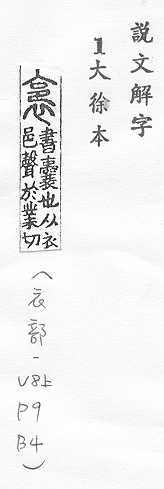 説文解字
1大徐本
書囊也从衣
邑聲於業切
(衣部-
V8上
P9
B4)